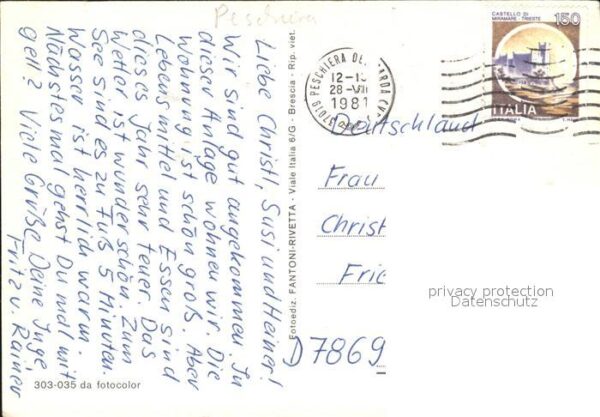 Peschiera
Liebe Christl, Susi und Heiner!
Wir sind gut angekommen. In
dieser Anlage wohnen wir. Die
Wohnung ist schön groß. Aber
Lebensmittel und Essen sind
dieses Jahr sehr teuer. Das
Wetter ist wunderschön. Zum
See sind es zu Fuß 5 Minuten.
Wasser ist herrlich warm.
Nächstes mal gehst Du mal mit
gell? Viele Grüße Deine Inge
Fritz u. Rainer
303-035 da fotocolor
Fotoediz. FANTONI-RIVETTA - Viale Italia 6/G - Brescia - Rip. viet.
37019 PESCHIERA DEL GARDA
12-1
28-VII
1981
CASTELLO DI
MIRAMARE - TRIESTE
150
ITALIA
Deutschland
Frau
Christ
Frie
D 7869
privacy protection
Datenschutz